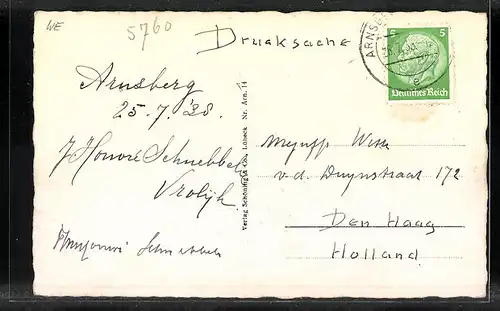 WE
5760
Drucksache
ARNSB
5 5
Deutsches Reich
Arnsberg
25.7.'38.
Schnebbel
Verlag Schöning & Co., Lübeck Nr. Arn. 14
v.d. Duynstraat 172
Den Haag
Holland
Schnebbel